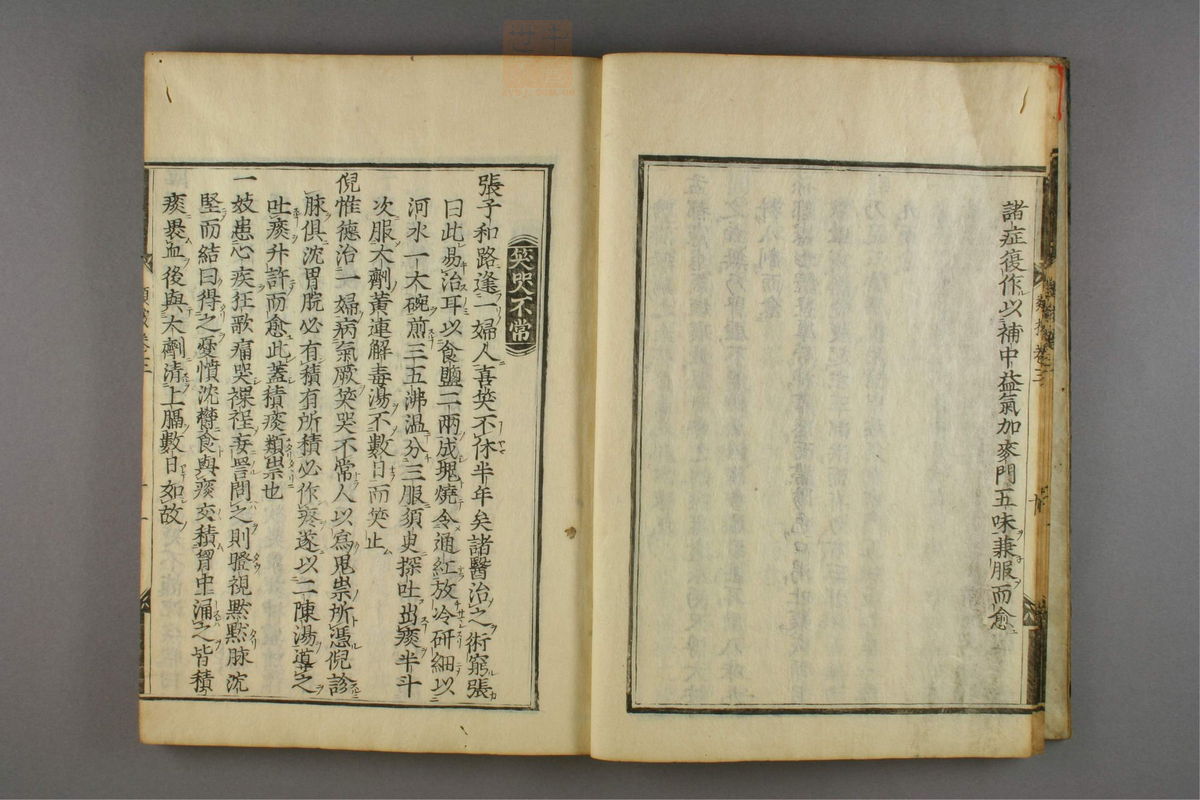 諸症復作以補中益氣加麥門五味兼服而愈
笑哭不常
張子和路逢一婦人喜笑不休半年矣諸醫治之術窮張
曰此易治耳以食鹽二兩成塊燒令通紅放冷研細以
河水一大碗煎三五沸溫分三服須臾探吐出痰半斗
次服大劑黃連解毒湯不數日而笑止
倪惟德治一婦病氣厥笑哭不常人以為鬼祟所憑倪診
脉俱沈胃脘必有積有所積必作疼遂以二陳湯導之
吐痰升許而愈此蓋積痰類祟也
一妓患心疾狂歌痛哭裸裎妄詈問之則瞪視默默脉沈
堅而結曰得之憂憤沈鬱食與痰交積胷中涌之皆積
痰裹血後與大劑清上膈數日如故